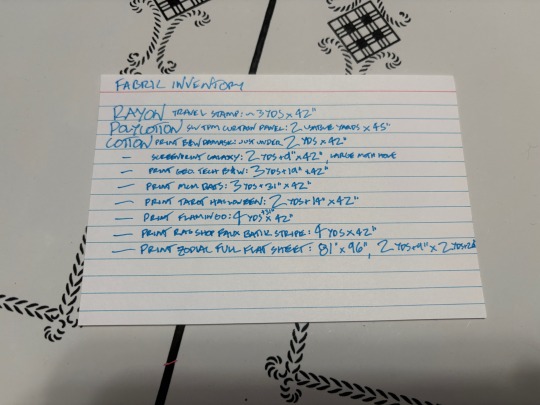 FABRIC INVENTORY
RAYON TRAVEL STAMP: ~3 YDS x 42"
POLYCOTTON CURTAIN PANEL: 2 USABLE YARDS x 45"
COTTON PRINT B&W DAMASK: JUST UNDER 2 YDS x 42"
— SCREENPRINT GALAXY: 2 YDS+9" x 42", LARGE MOTH HOLE
— PRINT GEO TECH B&W: 3 YDS+19" +42"
— PRINT MCM BATS: 3 YDS+31" x 42"
— PRINT TAROT HALLOWEEN: 2 YDS+14" x 42"
— PRINT FLAMINGO: 4 YDS x 42"
— PRINT RAG SHOP FAUX BATIK STRIPE: 4 YDS x 42"
— PRINT ZODIAC FULL FLAT SHEET: 81" x 96", 2 YDS+9" x 2 YDS+24"